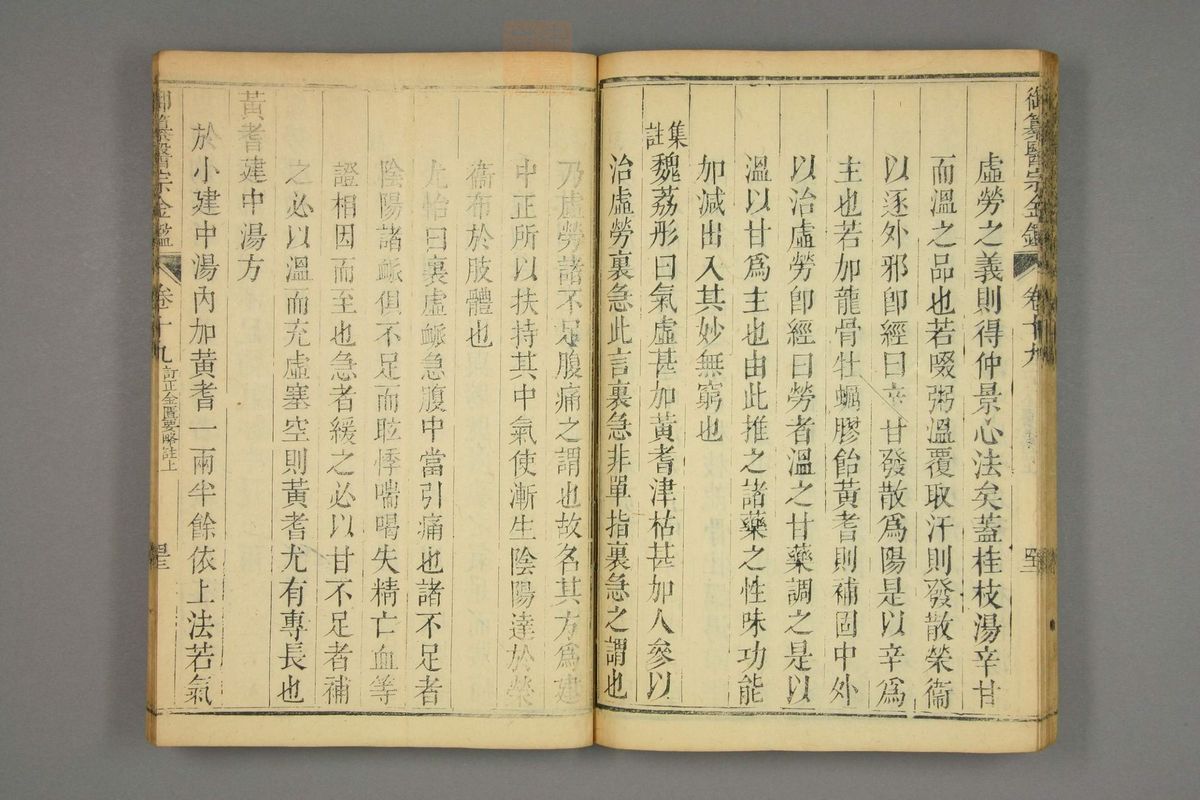 御纂醫宗金鑑 卷十九
虛勞之義則得仲景心法矣蓋桂枝湯辛甘
而溫之品也若啜粥溫覆取汗則發散榮衞
以逐外邪卽經曰辛甘發散爲陽是以辛爲
主也若加龍骨牡蠣膠飴黃耆則補固中外
以治虛勞卽經曰勞者溫之甘藥調之是以
溫以甘爲主也由此推之諸藥之性味功能
加減出入其妙無窮也
集註魏荔彤曰氣虛甚加黃耆津枯甚加人參以
治虛勞裏急此言裏急非單指裏急之謂也
乃虛勞諸不足腹痛之謂也故名其方爲建
中正所以扶持其中氣使漸生陰陽達於榮
衞布於肢體也
尤怡曰裏虛脈急腹中當引痛也諸不足者
陰陽諸脈俱不足而眩悸喘喝失精亡血等
證相因而至也急者緩之必以甘不足者補
之必以溫而充虛塞空則黃耆尤有專長也
黃耆建中湯方
於小建中湯內加黃耆一兩半餘依上法若氣
御纂醫宗金鑑 卷十九 訂正金匱要略註上